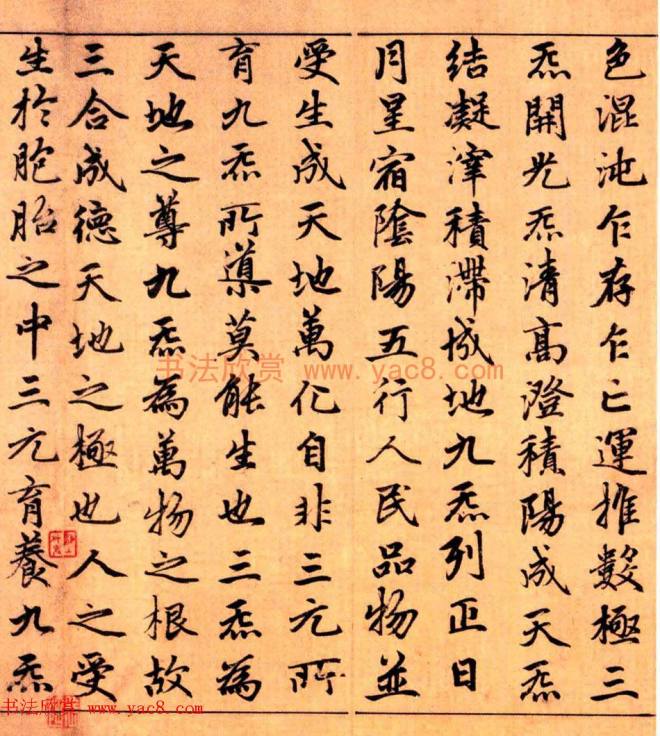 色混沌乍存乍亡運推數極三
炁開光炁清高澄積陽成天炁
結凝滓積滯成地九炁列正日
月星宿陰陽五行人民品物並
受生成天地萬化自非三元所
育九炁所導莫能生也三炁為
天地之尊九炁為萬物之根故
三合成德天地之極也人之受
生於胞胎之中三元育養九炁
书法欣赏 www.yac8.com
书法欣赏 www.yac8.com